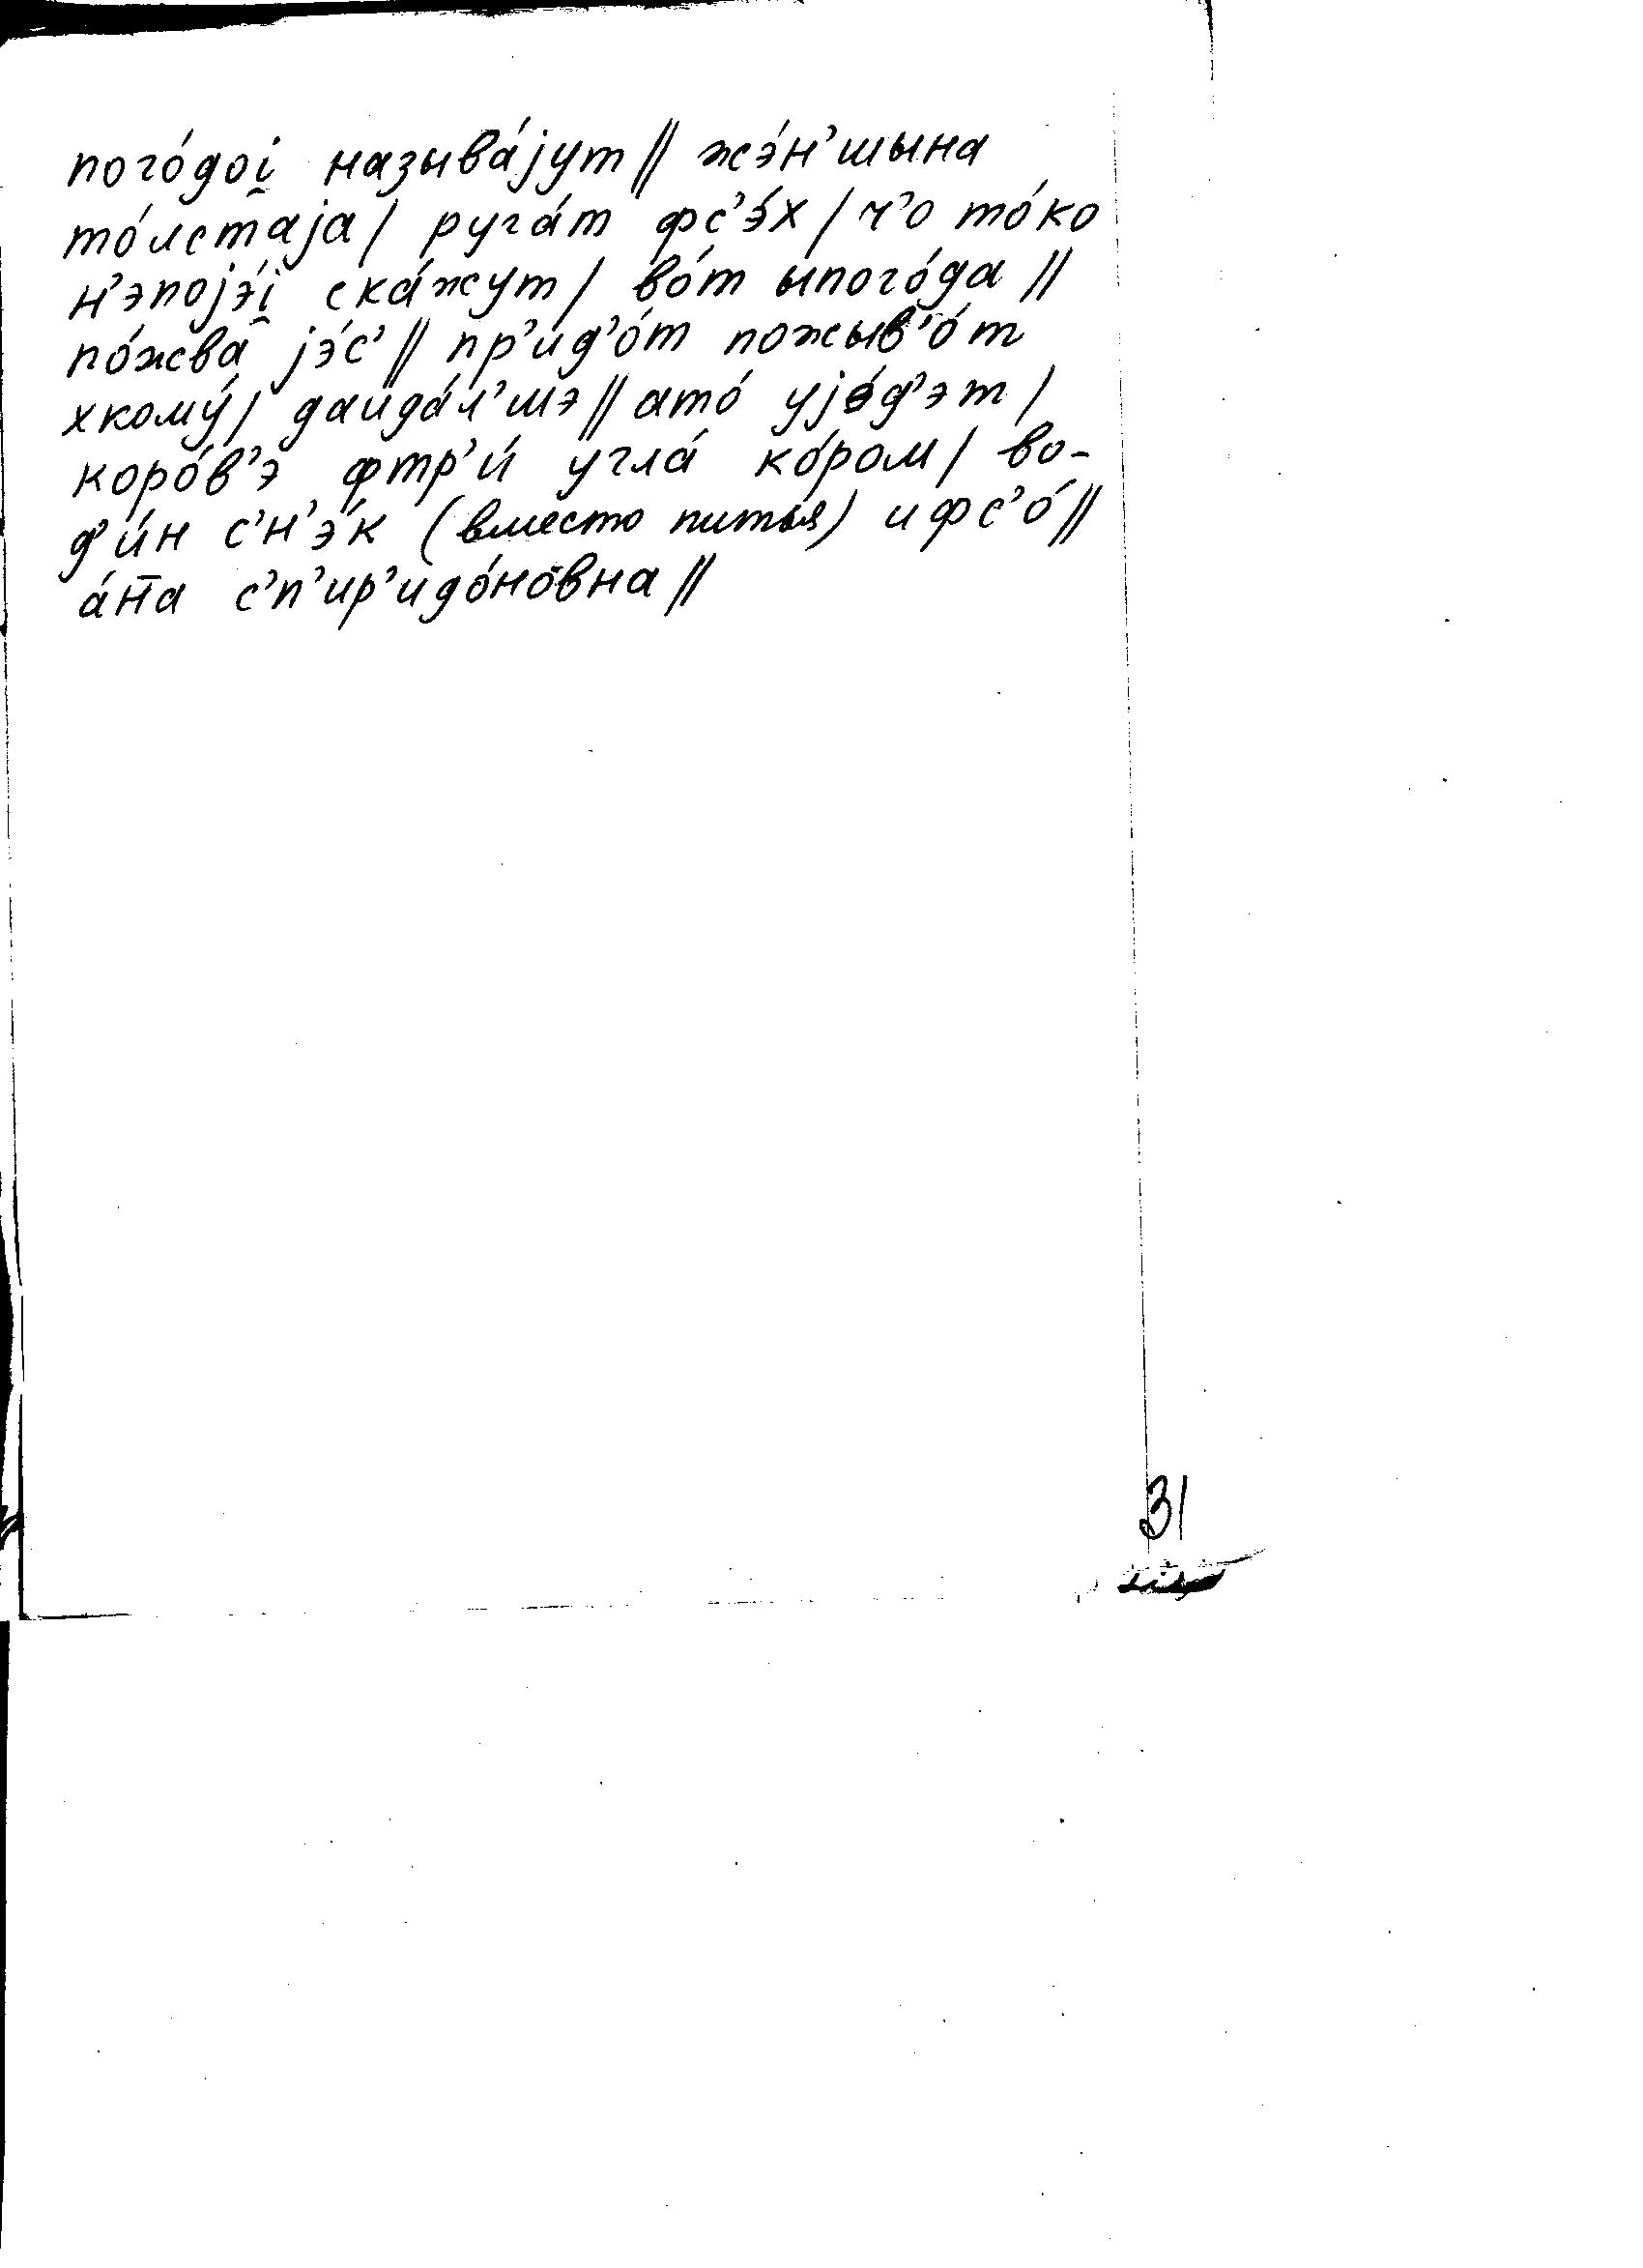 пого́доі̯ называ́јут // жэ́н’шына
то́лстаја / руга́т фс’э́х / ч’о то́ко
н’эпојэ́і̯ ска́жут / во́т ыпого́да //
по́жва јэ́с’ // пр’ид’о́т пожыв’о́т
хкому́ / даида́л’шэ // ато́ ујэ́д’эт /
коро́в’э фтр’и́ угла́ ко́ром / во-
д’и́н с’н’э́к (вместо питья) ифс’о́ //
а́н̄а с’п’ир’идо́новна //
31